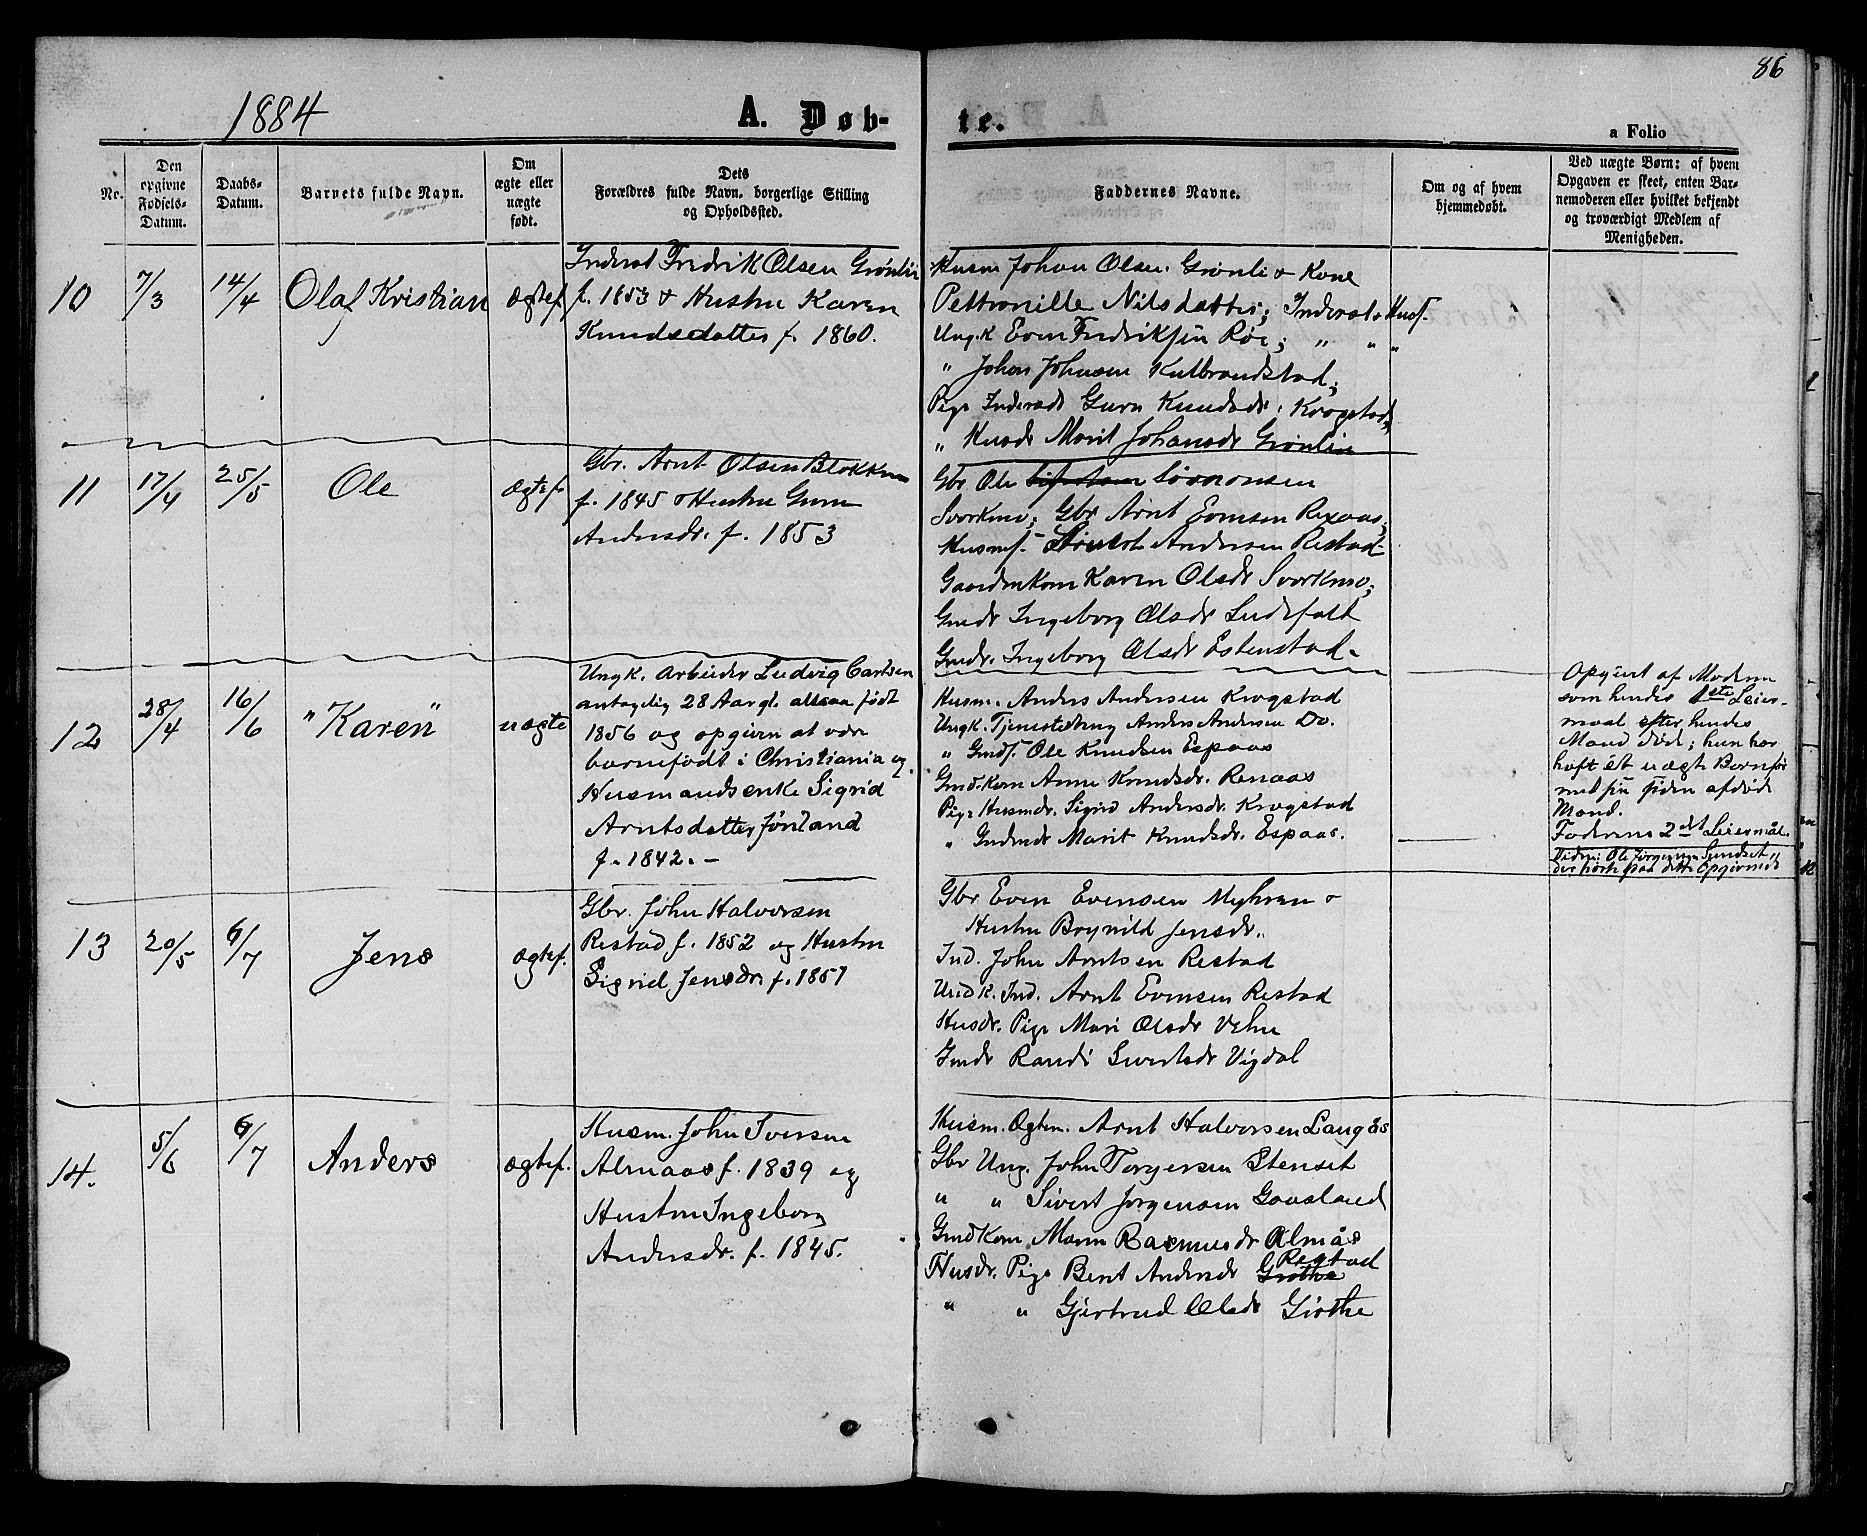 86
1884
A. Døb-
te.
a Folio
No.
Den
opgivne
Fødsels-
Datum.
Daabs-
Datum.
Barnets fulde Navn.
Om
ægte eller
uægte
født.
Dets
Forældres fulde Navn, borgerlige Stilling
og Opholdssted.
Faddernes Navne.
Om og af hvem
hjemmedøbt.
Ved uægte Børn: af hvem
Opgaven er skeet, enten Bar-
nemoderen eller hvilket bekjendt
og troværdigt Medlem af
Menigheden.
10
7/3
14/4
Olaf Kristian
ægtef.
Inderst Fredrik Olsen Grønlin
f. 1853 & Hustru Karen
Knudsdatter f. 1860.
Husm Johan Olsen Grønli & Kone
Pettronille Nilsdatter; Inderst &
Ungk Even Fredriksen Roe; " "
" Johan Johnsen Kulbrandstad;
Pige Inderstdr Guru Knudsdr. Krogstad,
" Husdr Marit Johansdr Grønlin
11
17/4
25/5
Ole
ægtef.
Gbr. Arnt Olsen Blokkum
f. 1845 & Hustru Guru
Andersdr. f. 1853
Gbr Ole Simonsen
Svorkmo; Gbr Arnt Evensen Rexaas;
Husmf. Andersen Restad
Gaardmkone Karen Olsdr Svorkmo;
Gmdr Ingeborg Olsdr
Gmdr. Ingeborg Olsdr Estenstad.
12
28/4
16/6
"Karen"
uægte
Ungk. Arbeider Ludvig Carlsen
antagelig 28 Aar gl. altsaa født
1856 og opgiven at være
barnefødt i Christiania og
Husmandsenke Sigrid
Arntsdatter Jønland
f. 1842. -
Husm. Anders Andersen Krogstad
Ungk. Tjenestedreng Anders Andersen Do.
" Gmdf. Ole Knudsen Espaas
Gmd.kone Anne Knudsdr. Renaas
Pige Husmdr. Sigrid Andersdr. Krogstad
" Gmdr Marit Knudsdr. Espaas.
Opgivet af Modren
som hendes 1ste Leier-
maal efter hendes
Mand død; hun har
havt et uægte Barn før
med sin siden afdøde
Mand.
Faderens 2det Leiermål.
Vidne: Ole Jørgensen Sundset
der hørte paa dette Opgivende
13
20/5
6/7
Jens
ægtef.
Gbr. John Halvorsen
Restad f. 1852 og Hustru
Sigrid Jensdr. f. 1857
Gbr Even Evensen Myhren &
Hustru Brynild Jensdr.
Ind. John Arntsen Restad
Ungk. Ind. Arnt Evensen Restad
Husdr. Pige Mari Olsdr
Gmdr Randi Sivertsdr Vigdal
14.
5/6
6/7
Anders
ægtef.
Husm. John Iversen
Almaas f. 1839 og
Hustru Ingeborg
Andersdr. f. 1845.
Husm. Ægtem. Arnt Halvorsen Langås
Gbr Ung. John Torgersen Stenset
" " Sivert Jørgensen Gaasland
Gmdkone Maren Rasmusdr Almås
Husdr. Pige Berit Andersdr Grøthe Restad
" " Gjertrud Olsdr Girthe